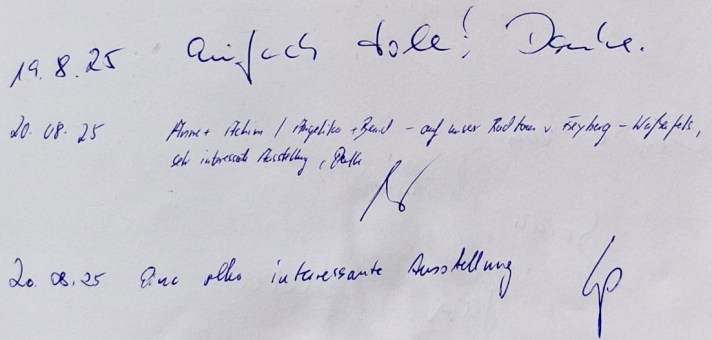 19.8.25 Einfach tole! Danke.
20.08.25 Anne + Achim / Angelika + Bernd – auf unser Radtour v. Freyburg – Weißenfels,
sehr interessante Ausstellung, Danke
20.08.25 Eine interessante Ausstellung